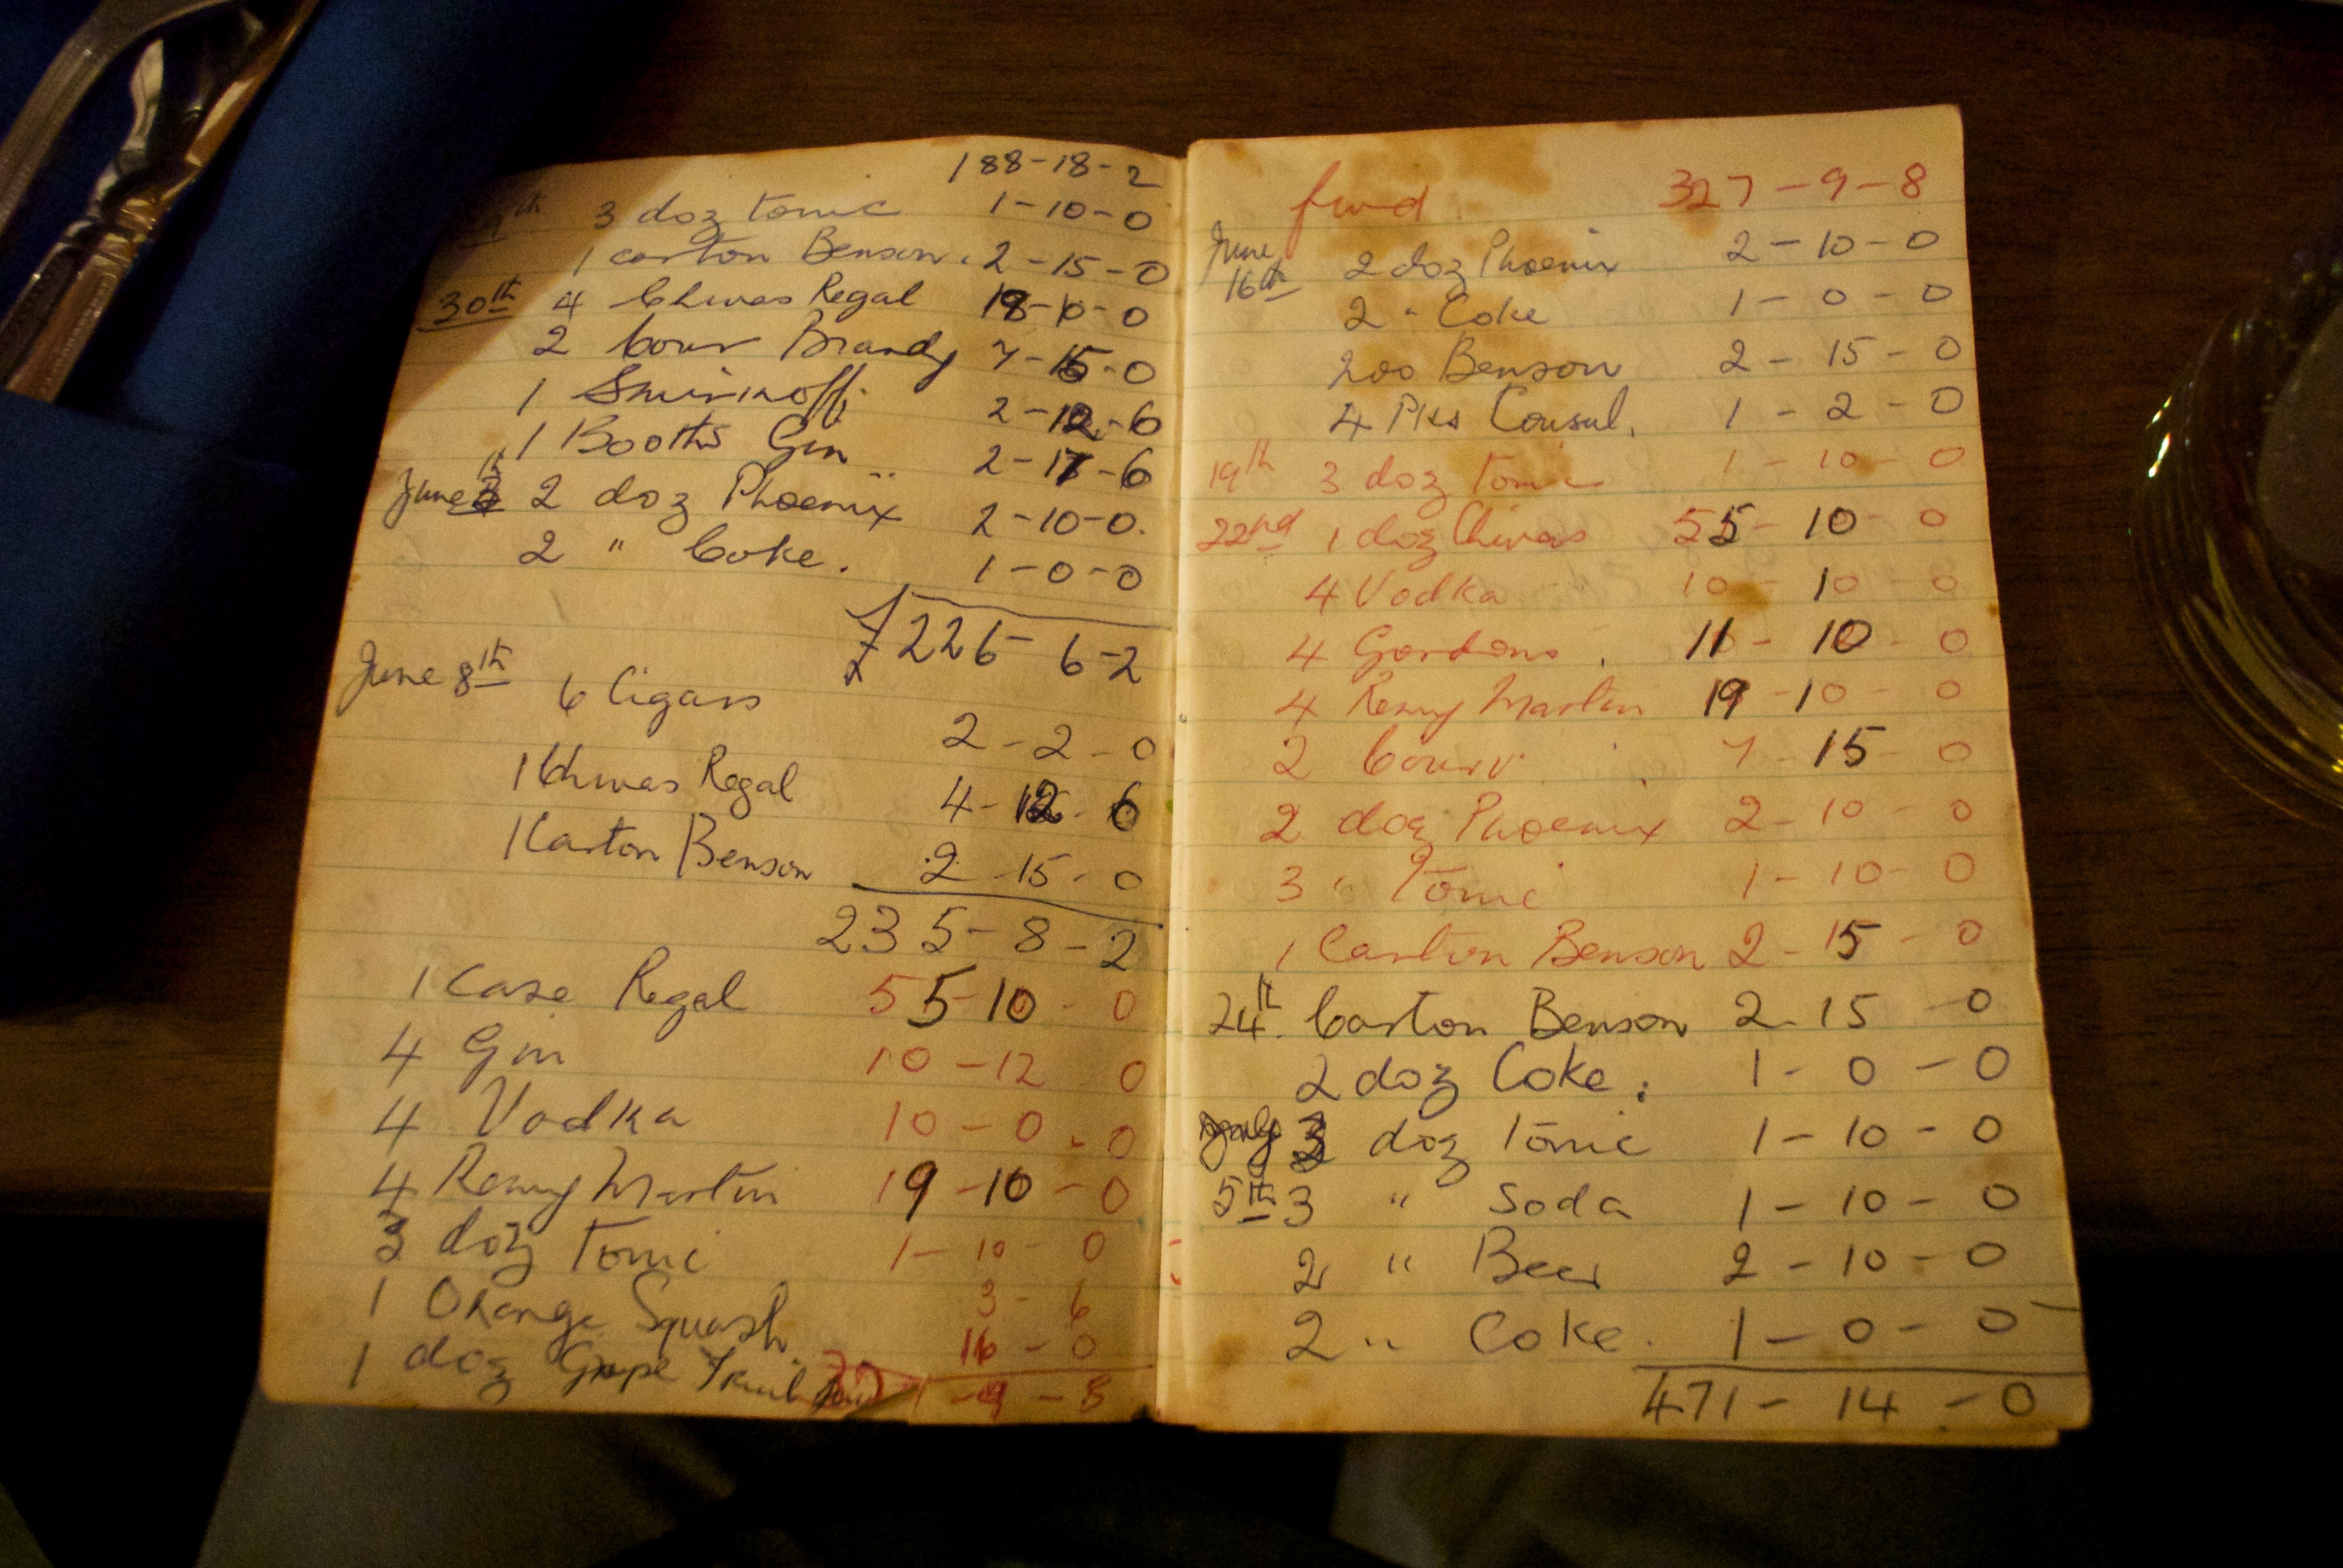 188-18-2
th 3 doz tonic 1-10-0
1 carton Benson. 2-15-0
30th 4 Chivas Regal 18-10-0
2 Cour Brandy 7-15-0
1 Smirnoff. 2-12-6
1 Booths Gin 2-17-6
June 2 doz Phoenix 2-10-0.
2 " Coke. 1-0-0
£226-6-2
June 8th 6 Cigars
2-2-0
1 Chivas Regal 4-12-6
1 Carton Benson 2-15-0
235-8-2
1 Case Regal 55-10-0
4 Gin 10-12-0
4 Vodka 10-0-0
4 Remy Martin 19-10-0
3 doz Tonic 1-10-0
1 Orange Squash 3-6
1 doz Grape Fruit 16-0
-9-8
fwd 327-9-8
June
16th 2 doz Phoenix 2-10-0
2 " Coke 1-0-0
200 Benson 2-15-0
4 Pkts Consul. 1-2-0
19th 3 doz Tonic 1-10-0
22nd 1 doz Chivas 55-10-0
4 Vodka 10-10-0
4 Gordons. 11-10-0
4 Remy Martin 19-10-0
2 Courv. 7-15-0
2 doz Phoenix 2-10-0
3 " Tonic 1-10-0
1 Carton Benson 2-15-0
24th. Carton Benson 2-15-0
2 doz Coke. 1-0-0
July 3 doz Tonic 1-10-0
5th 3 " Soda 1-10-0
2 " Beer 2-10-0
2 " Coke. 1-0-0
471-14-0